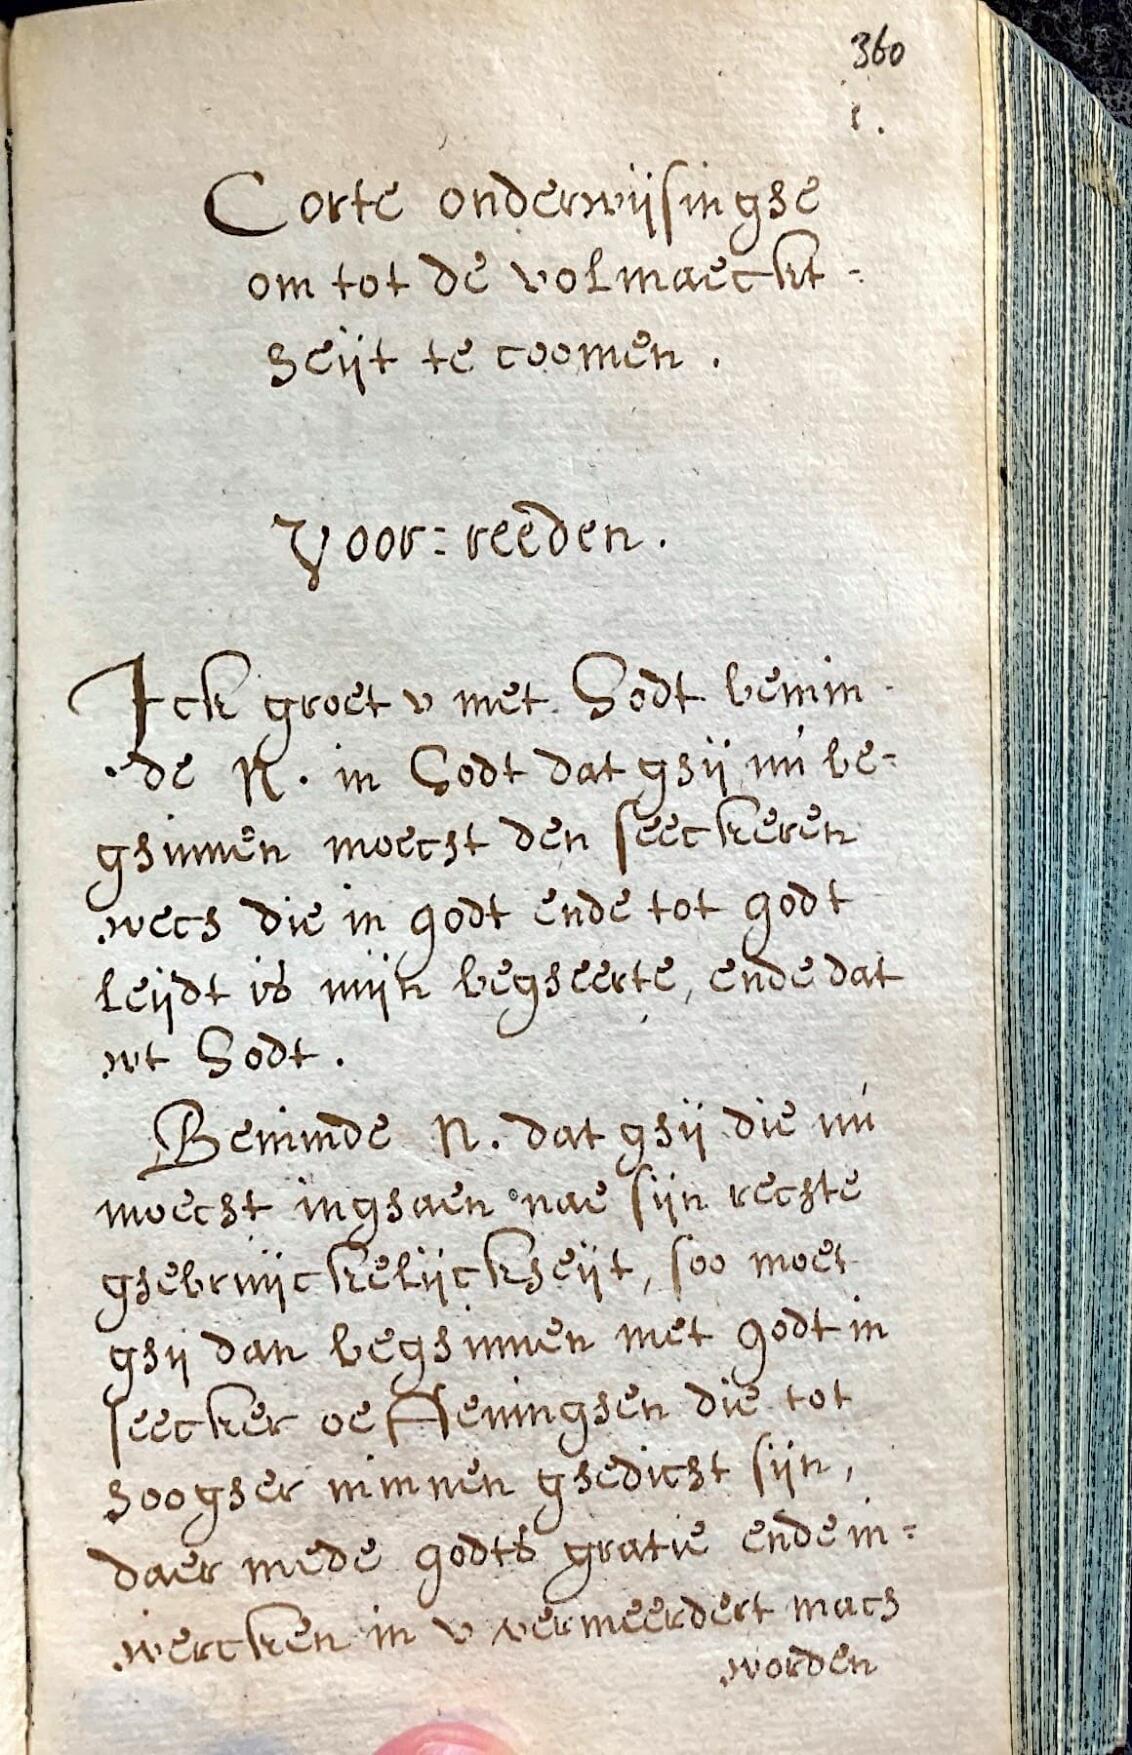 360
1.
Corte onderwijsinghe
om tot de volmaeckt=
heijt te coomen.
Voor=reeden.
Ick groet v met Godt bemin
de N. in Godt dat ghij nú be=
ghinnen moecht den seeckeren
wech die in godt ende tot godt
leijdt is mijn begheerte, ende dat
wt Godt.
Beminde N. dat ghij die nú
moecht inghaen nae sijn rechte
ghebruijckelijckheijt, soo moet
ghij dan beghinnen met godt in
seecker oeffeninghen die tot
hoogher minnen ghedicht sijn,
daer mede godts gratie ende in=
wercken in v vermeerdert mach
worden